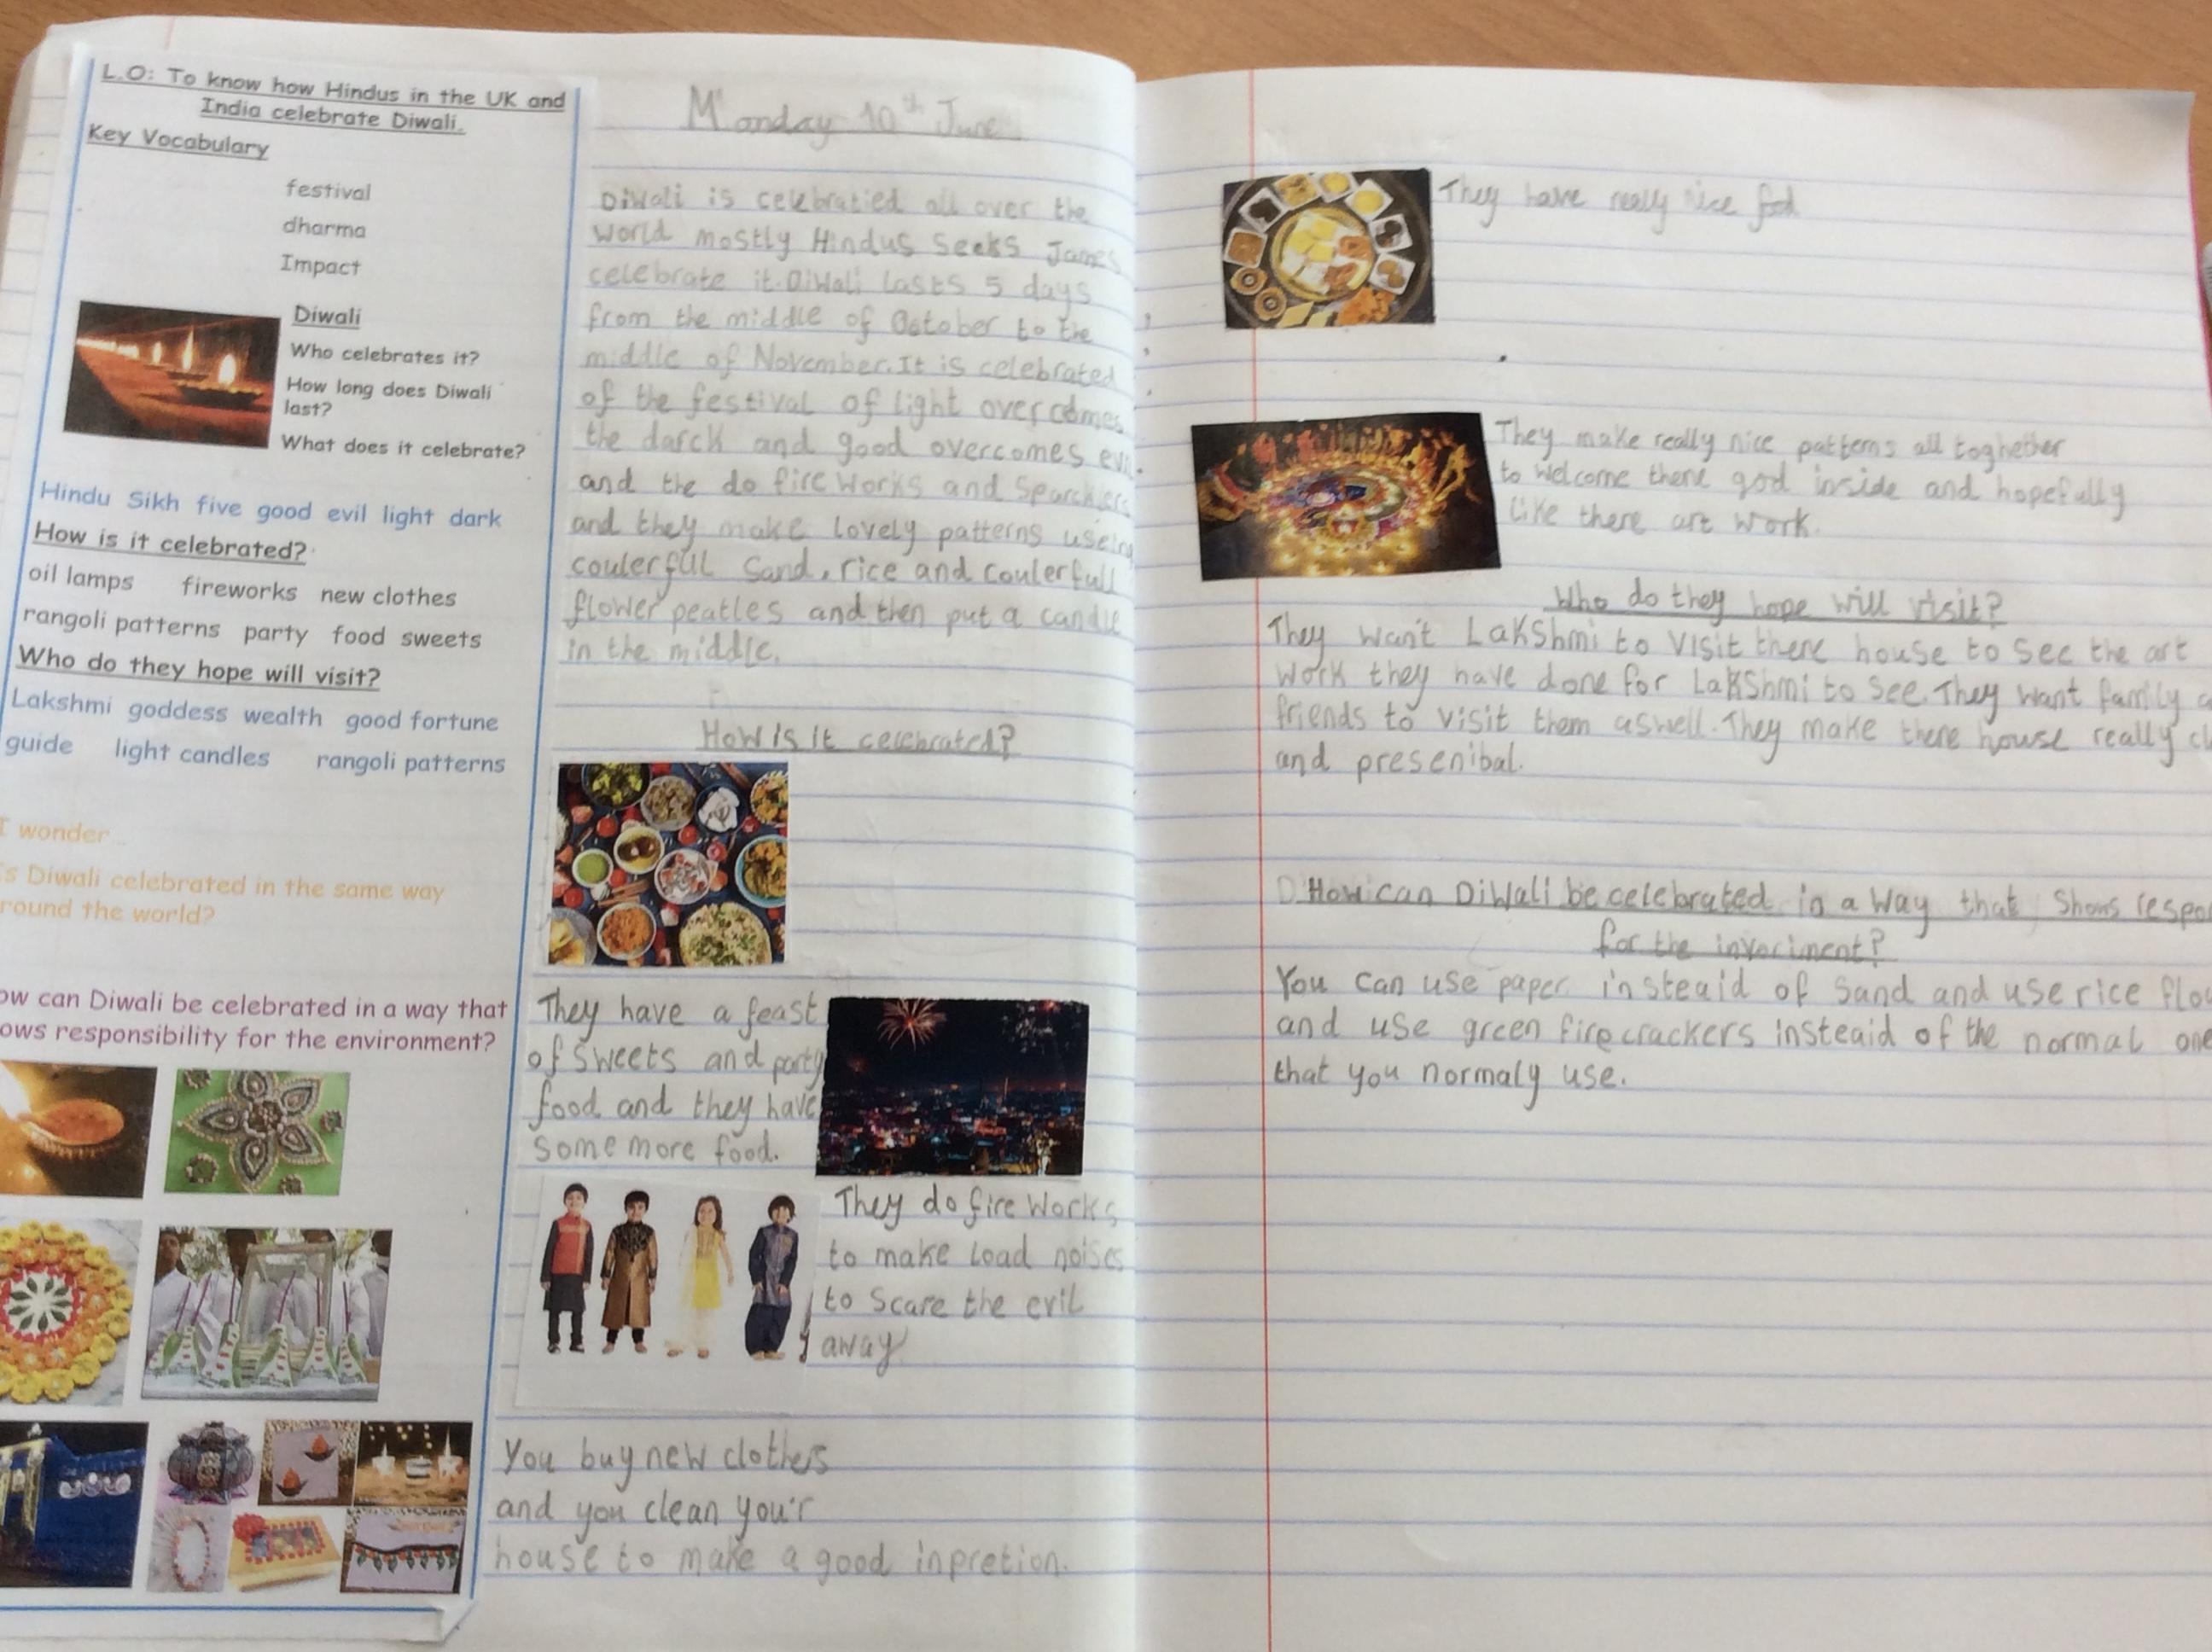 L.O: To know how Hindus in the UK and
India celebrate Diwali.
Key Vocabulary
festival
dharma
Impact
Diwali
Who celebrates it?
How long does Diwali
last?
What does it celebrate?
Hindu Sikh five good evil light dark
How is it celebrated?
oil lamps fireworks new clothes
rangoli patterns party food sweets
Who do they hope will visit?
Lakshmi goddess wealth good fortune
guide light candles rangoli patterns
I wonder
s Diwali celebrated in the same way
round the world?
ow can Diwali be celebrated in a way that
ows responsibility for the environment?
Monday 10th June
Diwali is celebratied all over the
world mostly Hindus Seeks James
celebrate it. Diwali lasts 5 days
from the middle of October to the
middle of November. It is celebrated
of the festival of light overcomes
the darck and good overcomes evil
and the do fire works and Sparcklers
and they make lovely patterns useing
coulerful Sand, rice and coulerfull
flower peatles and then put a candle
in the middle.
How is it celebrated?
They have a feast
of sweets and party
food and they have
some more food.
They do fire works
to make load noises
to scare the evil
away
You buy new clothers
and you clean you'r
house to make a good inpretion.
They have really nice food
They make really nice patterns all toghether
to welcome there god inside and hopefully
like there art work.
Who do they hope will visit?
They wan't Lakshmi to visit there house to see the art
work they have done for Lakshmi to see. They want family a
friends to visit them aswell. They make there house really cl
and presenibal.
How can Diwali be celebrated in a way that shows respo
for the invoriment?
You can use paper insteaid of sand and use rice flou
and use green firecrackers insteaid of the normal one
that you normaly use.